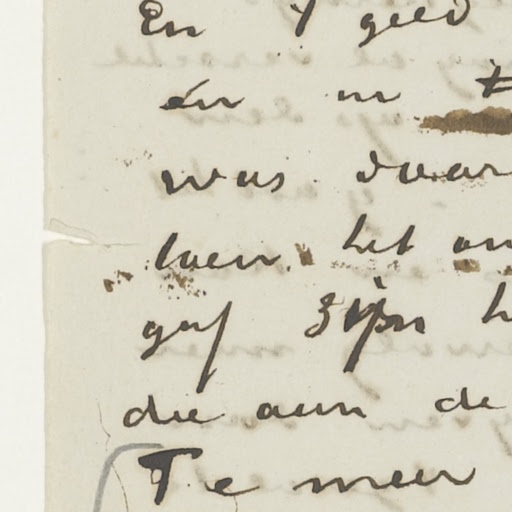 En 't geed
én in
was daar
toen het
gaf zijn h
die aan de
Te meer